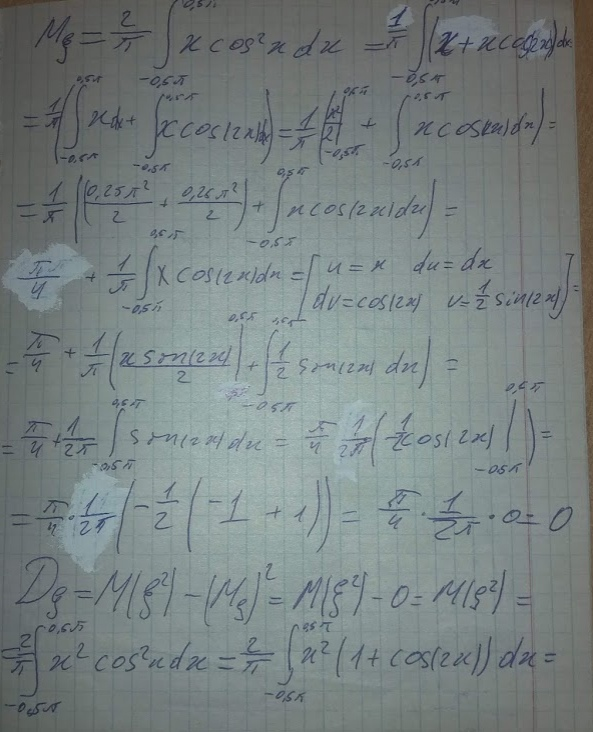 Mξ = 2/π ∫_{-0,5π}^{0,5π} x cos²x dx = 1/π ∫_{-0,5π} (x + x cos(2x)) dx
= 1/π (∫_{-0,5π}^{0,5π} x dx + ∫_{-0,5π}^{0,5π} x cos(2x) dx) = 1/π (x²/2 |_{-0,5π}^{0,5π} + ∫_{-0,5π}^{0,5π} x cos(2x) dx) =
= 1/π ((0,25π²/2 + 0,25π²/2) + ∫_{-0,5π}^{0,5π} x cos(2x) dx) =
π/4 + 1/π ∫_{-0,5π}^{0,5π} x cos(2x) dx = [u = x du = dx
dv = cos(2x) v = 1/2 sin(2x)] =
= π/4 + 1/π (x sin(2x)/2 |^{0,5π} + ∫_{-0,5π}^{0,5π} 1/2 sin(2x) dx) =
= π/4 + 1/2π ∫_{-0,5π}^{0,5π} sin(2x) dx = π/4 1/2π (1/2 cos(2x) |_{-0,5π}^{0,5π}) =
= π/4 · 1/2π (-1/2 (-1 + 1)) = π/4 · 1/2π · 0 = 0
Dξ = M(ξ²) - (Mξ)² = M(ξ²) - 0 = M(ξ²) =
= 2/π ∫_{-0,5π}^{0,5π} x² cos²x dx = 2/π ∫_{-0,5π}^{0,5π} x² (1 + cos(2x)) dx =